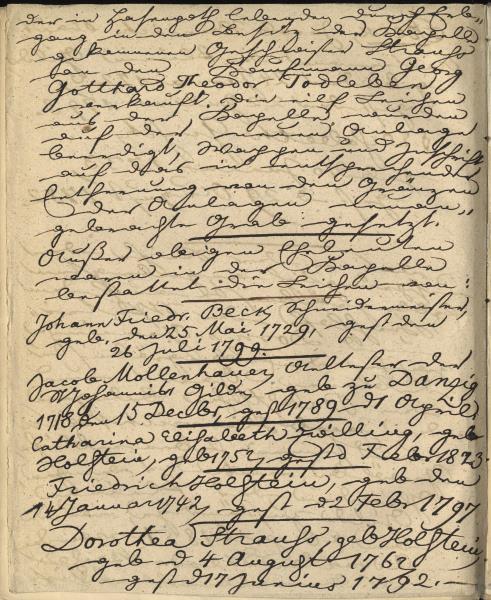 der in Hasenpoth lebenden, durch Erb-
gang in den Besitz der Kapelle
gekommenen Geschwister Strauss
an den Kaufmann Georg
Gotthard Theodor Todleben
verkauft. Die elf Leichen
aus der Kapelle wurden
auf der neuen Anlage
beerdigt, Wappen und Inschrift
auf das in entsprechender
Entfernung von den Gränzen
der Anlagen neuan-
gebrachte Grab gesetzt.
Außer obigen Eheleuten
waren in der Kapelle
bestattet die Leichen von:
Johann Friedr. Beck, Schneidermeister,
geb. den 25 Mai 1729, gest den
26 Juli 1799.
Jacob Mollenhauer, Aeltester der
St Johannis Gilde, geb zu Danzig
1718 den 15 Decbr, gest 1789 d 1 April
Catharina Elisabeth Zwilling, geb
Holstein, geb 1752, gest d Febr 1823
Friedrich Holstein, geb den
14 Januar 1742, gest d 2 Febr 1797
Dorothea Strauss, geb Holstein,
geb d 4 August 1762
gest d 17 Junius 1792.